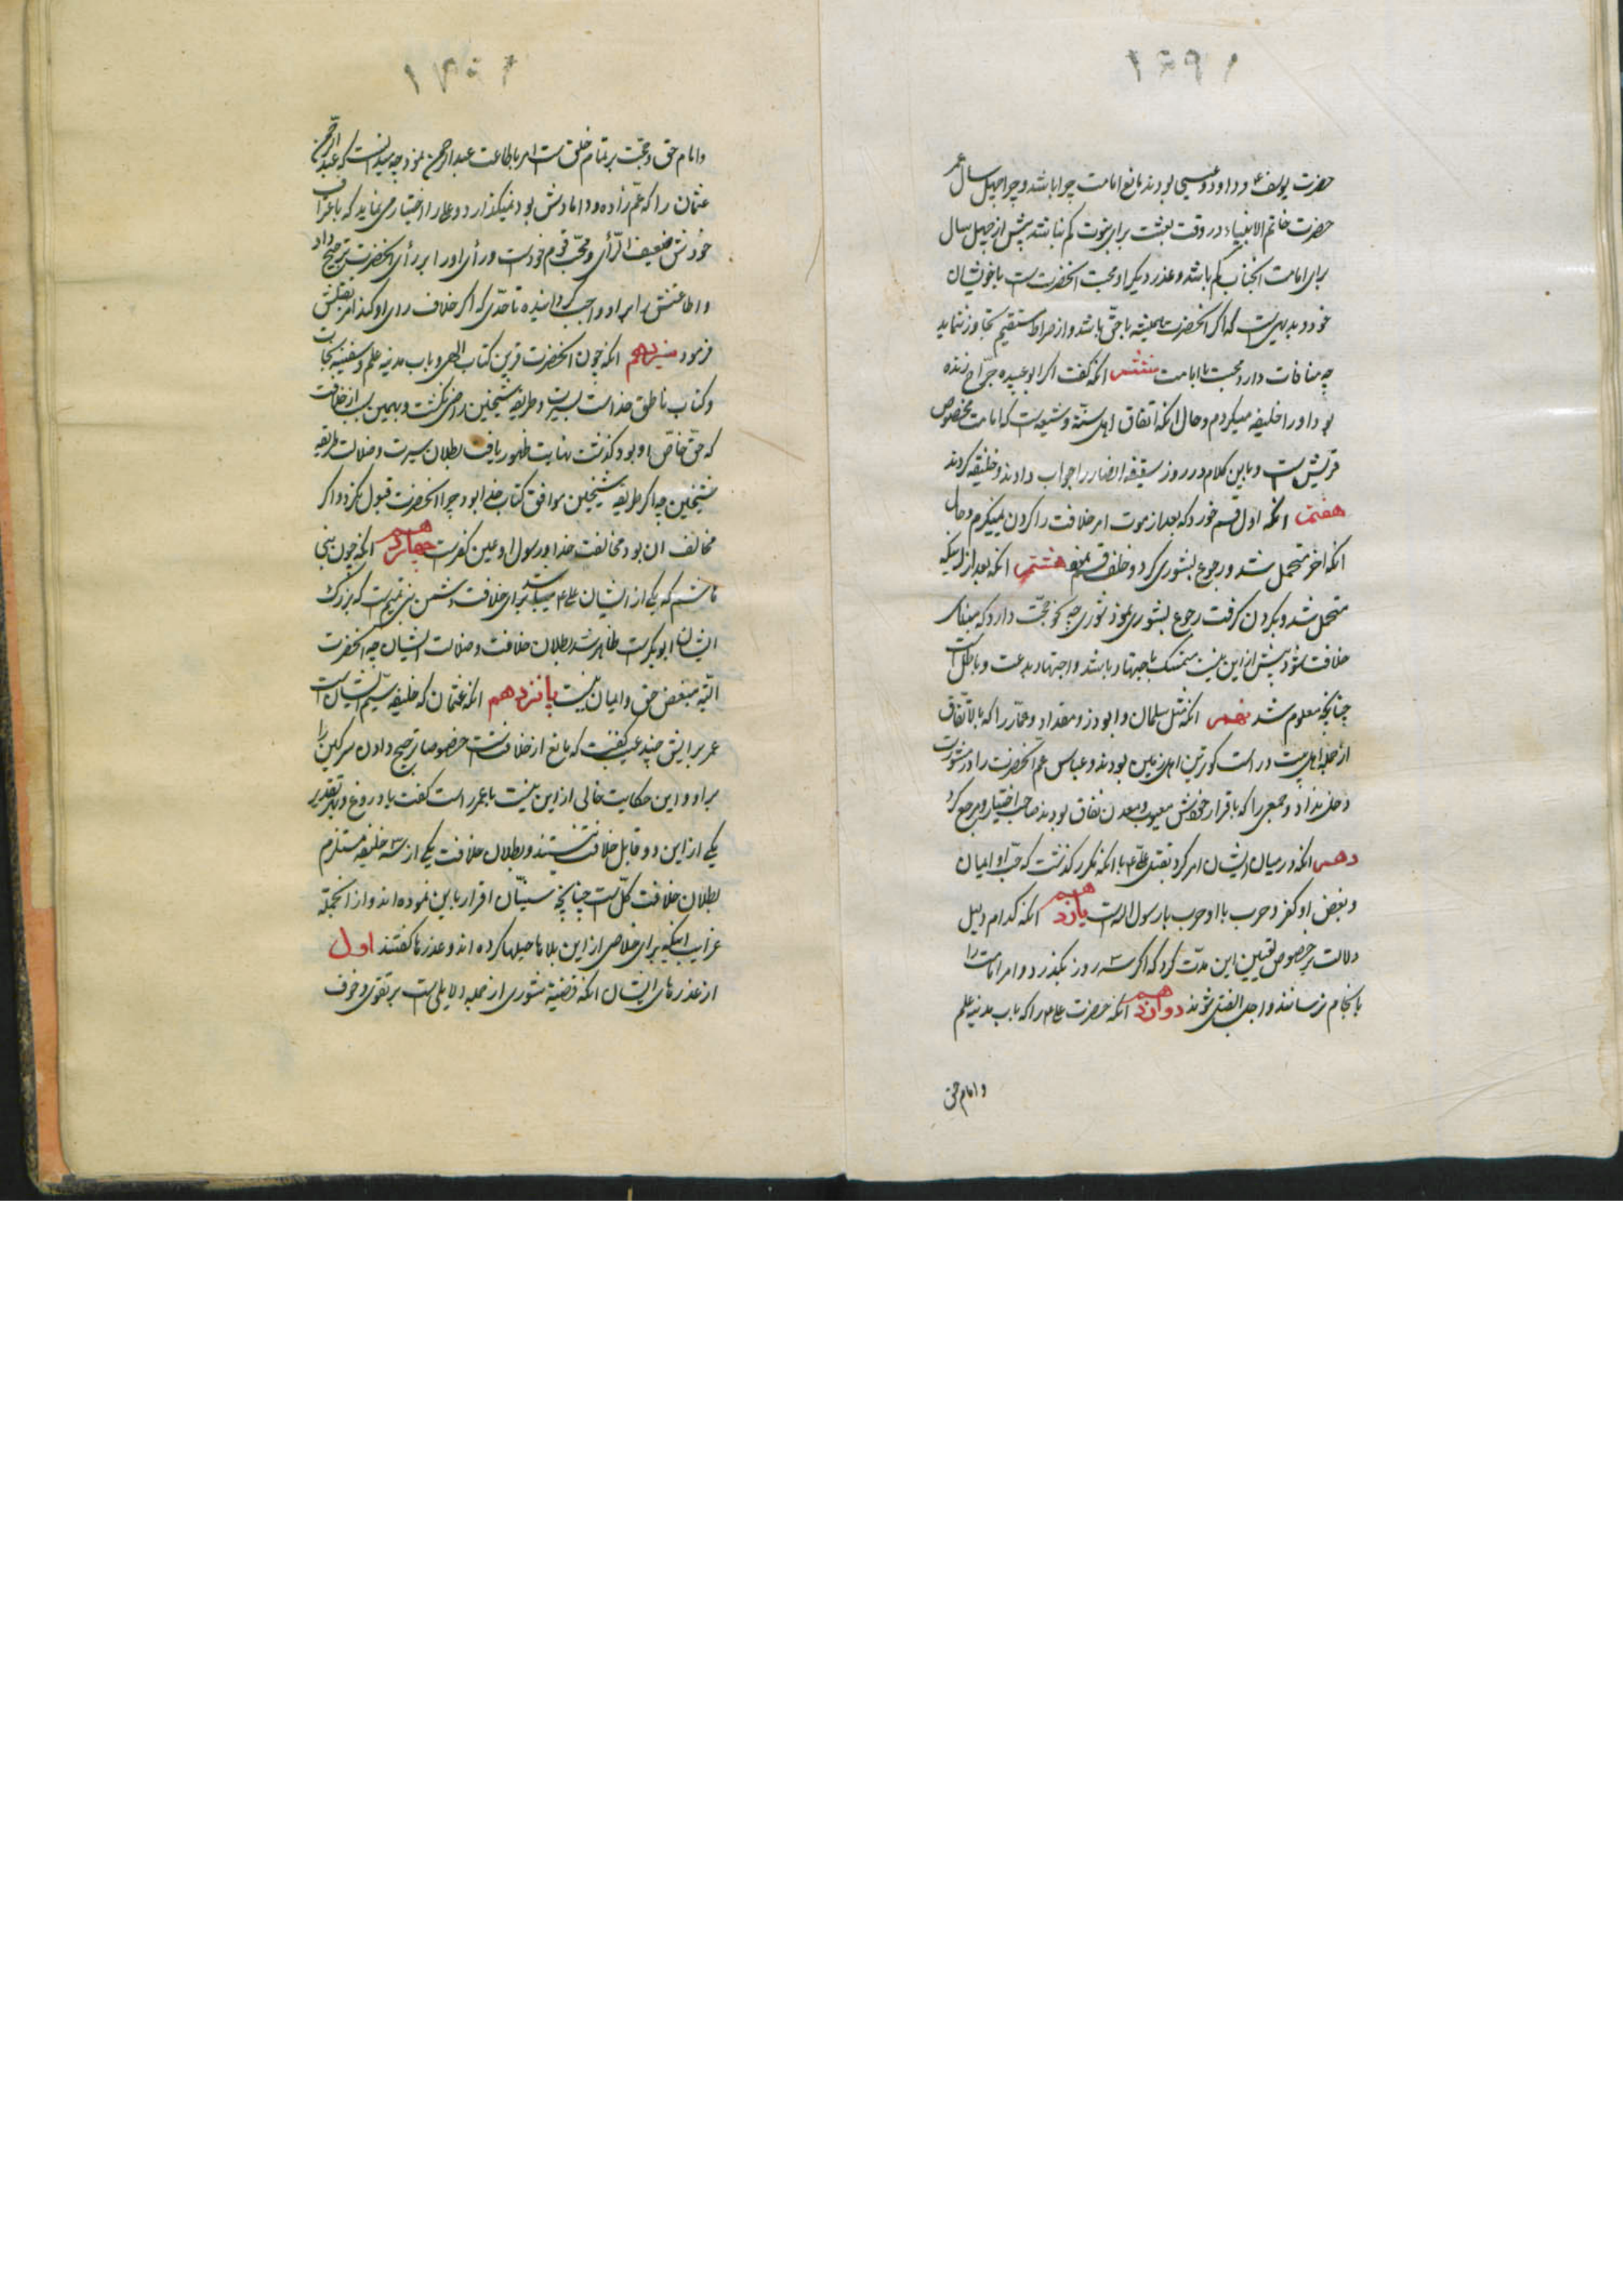 حضرت یوسف ع و داود و عیسی بودند مانع امامت چرا باشد و چرا چهل سال عمر
حضرت خاتم الانبیاء در وقت بعثت برای نبوت کم نباشد پیش از چهل سال
برای امامت آنجناب کم باشد و عذر دیگر او محبت آنحضرتست باخویشان
خود و بدیهیست که اگر آنحضرت همیشه با حق باشد و از صراط مستقیم تجاوز ننماید
چه منافات دارد محبت با امامت ششم آنکه گفت اگر ابو عبیده جراح زنده
بود او را خلیفه میکردم و حال آنکه اتفاق اهل سنّة و شیعه است که امامت مخصوص
قریش است و باین کلام در روز سقیفه انصار را جواب دادند و خلیفه کردند
هفتم آنکه اول قسم خورد که بعد از موت امر خلافت را کردن نمیگیرم و حال
آنکه آخر متحمل شد و رجوع بشوری کرد و خلف قسم نمود هشتم آنکه بعد از اینکه
متحمل شد و بکردن گرفت رجوع بشوری نمود شوری چه نحو حجّت دارد که مبنای
خلافت شود بیش از این نیست متمسک باجتهاد باشد و اجتهاد بدعت و باطل است
چنانچه معلوم شد نهم آنکه مثل سلمان و ابوذر و مقداد و عمّار را که بالاتّفاق
از جمله اهل بیت و راست کوترین اهل زمین بودند و عباس عم آنحضرت را در مشورت
دخل نداد و جمعی را که باقرار خودش معیوب و معدن نفاق بودند صاحب اختیار و مرجع کرد
دهم آنکه در میان ایشان امر کرد بقتل علی ع با آنکه مکرر کذشت که حبّ او ایمان
و بغض او کفر و حرب با او حرب با رسول الله است یازدهم آنکه کدام دلیل
دلالت بر خصوص تعیین این مدّت کرد که اگر سه روز بگذرد و امر امامت را
بانجام نرسانند واجب القتل شوند دوازدهم آنکه حضرت علی ع را که باب مدینه علم
و امام حق
و امام حق و حجّت بر تمام خلق است امر باطاعت عبدالرحمن نمود چه میدانست که عبدالرحمن
عثمان را که عمّ زاده و دامادش بود نمیگذارد و علی را اختیار نمی نماید که باعتراف
خودش ضعیف الرّأی و محبّ قوم خود است و رأی او را بر رأی آنحضرت ترجیح داد
و اطاعتش را بر او واجب گردانیده تا حدّی که اگر خلاف رای او کند امر بقتلش
فرمود سیزدهم آنکه چون آنحضرت قرین کتاب الهی و باب مدینه علم و سفینه نجات
و کتاب ناطق خداست بسیرت و طریقه شیخین راضی نگشت و بهمین سبب از خلافت
که حقّ خاصّ او بود کذشت نهایت ظهور یافت بطلان سیرت و ضلالت طریقه
شیخین چه اگر طریقه شیخین موافق کتاب خدا بود چرا آنحضرت قبول نکرد و اگر
مخالف آن بود مخالفت خدا و رسول او عین کفرست چهاردهم آنکه چون بنی
هاشم که یکی از ایشان علی ع میباشد برای خلافت دشمن بنی تمیم است که بزرگ
ایشان ابوبکر است ظاهر شد بطلان خلافت و ضلالت ایشان چه آنحضرت
البتّه مبغض حق و ایمان نیست پانزدهم آنکه عثمان که خلیفه سیّم ایشان است
عمر برایش چند عیب گفت که مانع از خلافتست خصوصا ترجیح دادن سرگین را
بر او و این حکایت خالی از این نیست یا عمر راست گفت یا دروغ و بهر تقدیر
یکی از این دو قابل خلافت نیستند و بطلان خلافت یکی از سه خلیفه مستلزم
بطلان خلافت کلّ است چنانچه سنّیان اقرار باین نموده اند و از آنجمله
غرایب اینکه برای خلاصی از این بلاها حیلها کرده اند و عذرها گفتند اول
از عذرهای ایشان آنکه قضیّه شوری از جمله دلایلی است بر تقوی و خوف